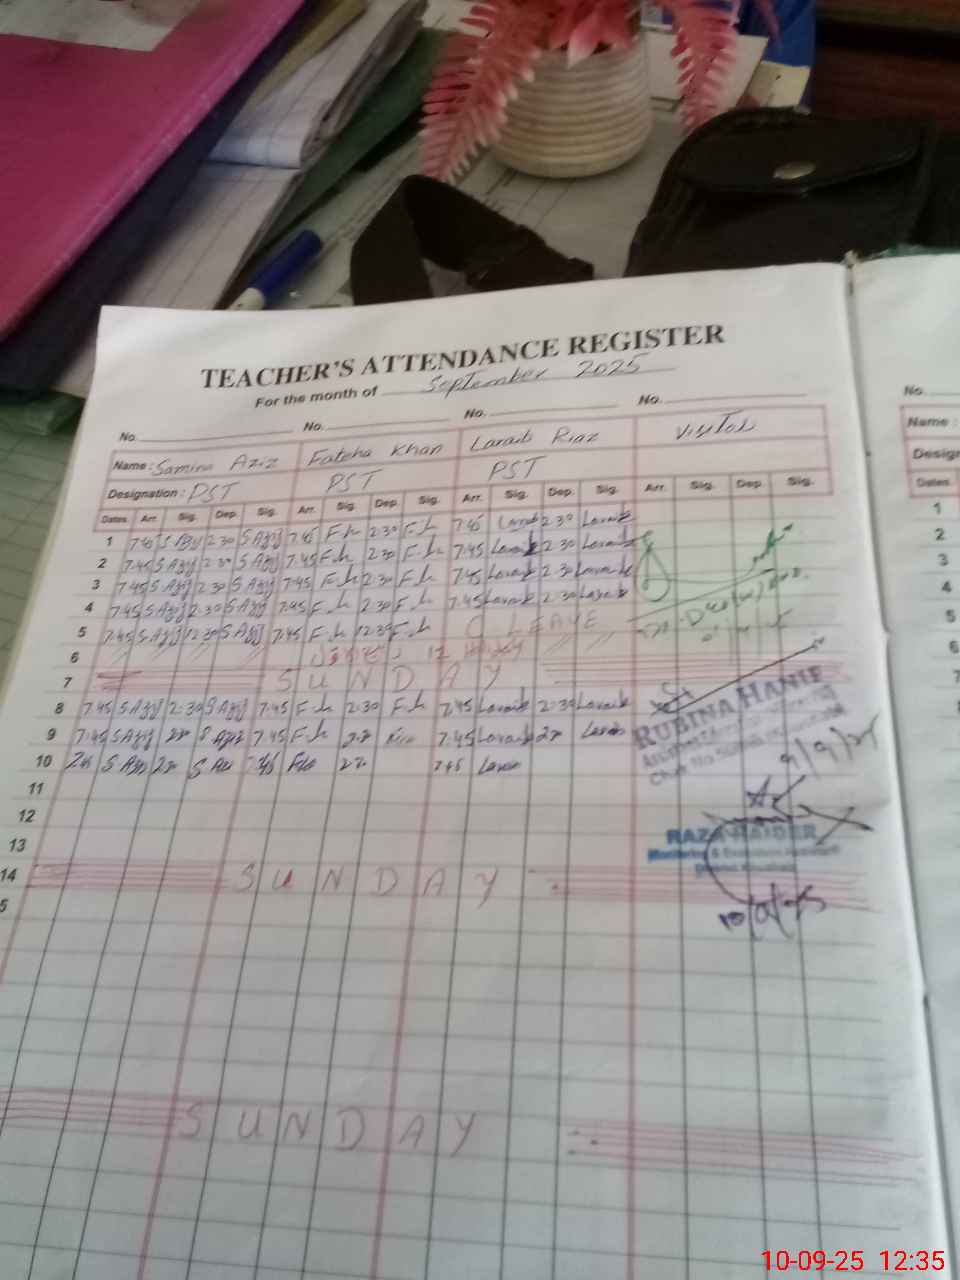 TEACHER'S ATTENDANCE REGISTER
For the month of September 2025
No. No. No. No.
Name : Samina Aziz Fateha Khan Laraib Riaz Visitor
Designation : PST PST PST
Dates Arr. Sig. Dep. Sig. Arr. Sig. Dep. Sig. Arr. Sig. Dep. Sig. Arr. Sig. Dep. Sig.
1 7.45 S Aziz 2.30 S Aziz 7.45 F.k 2.30 F.k 7.45 Laraib 2.30 Laraib
2 7.45 S Aziz 2.30 S Aziz 7.45 F.k 2.30 F.k 7.45 Laraib 2.30 Laraib
3 7.45 S Aziz 2.30 S Aziz 7.45 F.k 2.30 F.k 7.45 Laraib 2.30 Laraib
4 7.45 S Aziz 2.30 S Aziz 7.45 F.k 2.30 F.k 7.45 Laraib 2.30 Laraib
5 7.45 S Aziz 12.30 S Aziz 7.45 F.k 12.30 F.k C LEAVE
6 12
7 SUNDAY
8 7.45 S Aziz 2.30 S Aziz 7.45 F.k 2.30 F.k 7.45 Laraib 2.30 Laraib
9 7.45 S Aziz S Aziz 7.45 F.k 7.45 Laraib Laraib
10 7.45 S Aziz S Aziz 7.45 7.45 Laraib
11
12
13
14 SUNDAY
5
SUNDAY
RUBINA HANIF
9/9/25
RAZA HAIDER
Monitoring & Evaluation Assistant
10/9/25
No.
Name :
Dates
1
2
3
4
5
6
10-09-25 12:35